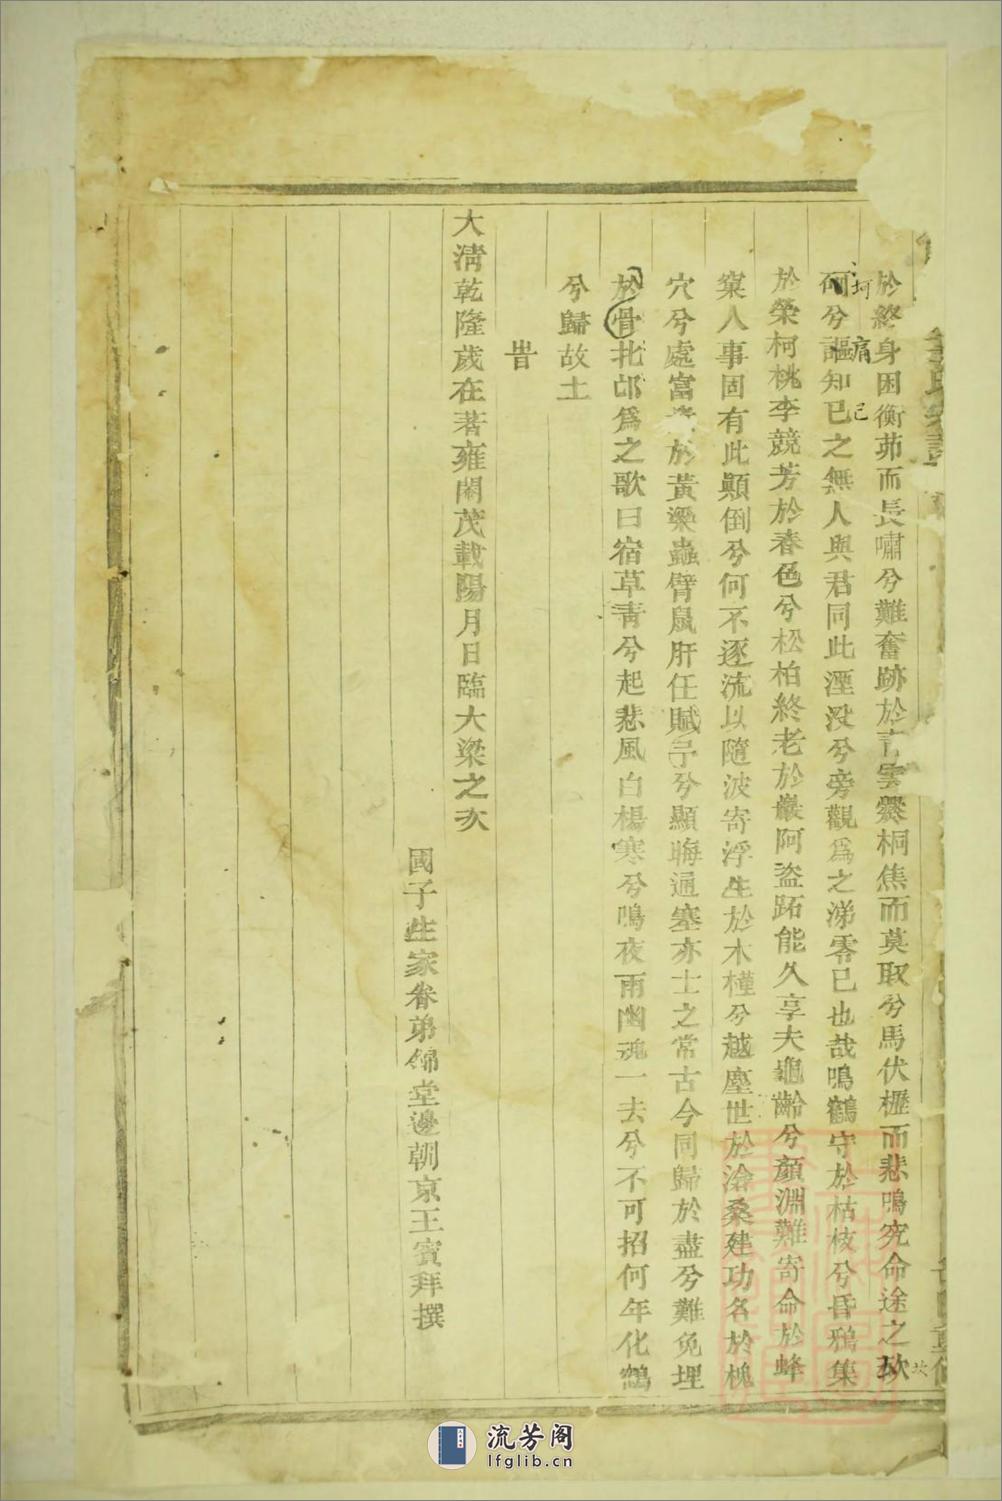 於終身困衡茆而長嘯兮難奮跡於雲爨桐焦而莫取兮馬伏櫪而悲鳴究命途之坎
坷兮謳知已之無人與君同此湮沒兮旁觀爲之涕零已也哉鳴鶴守於枯枝兮昏鴉集
坷 痛 己
坎
於榮柯桃李競芳於春色兮松柏終老於巖阿盜跖能久享夫龜齡兮顏淵難寄命於蜂
窠人事固有此顚倒兮何不逐流以隨波寄浮生於木槿兮越塵世於滄桑建功名於槐
穴兮處富於黃粱蟲臂鼠肝任賦予兮顯晦通塞亦士之常古今同歸於盡兮難免埋
於骨北邙爲之歌曰宿草靑兮起悲風白楊寒兮鳴夜雨幽魂一去兮不可招何年化鶴
兮歸故土
旹
大淸乾隆歲在著雍閹茂載陽月日臨大梁之次
國子生家眷弟錦堂邊朝京王賓拜撰
流芳阁
lfglib.cn